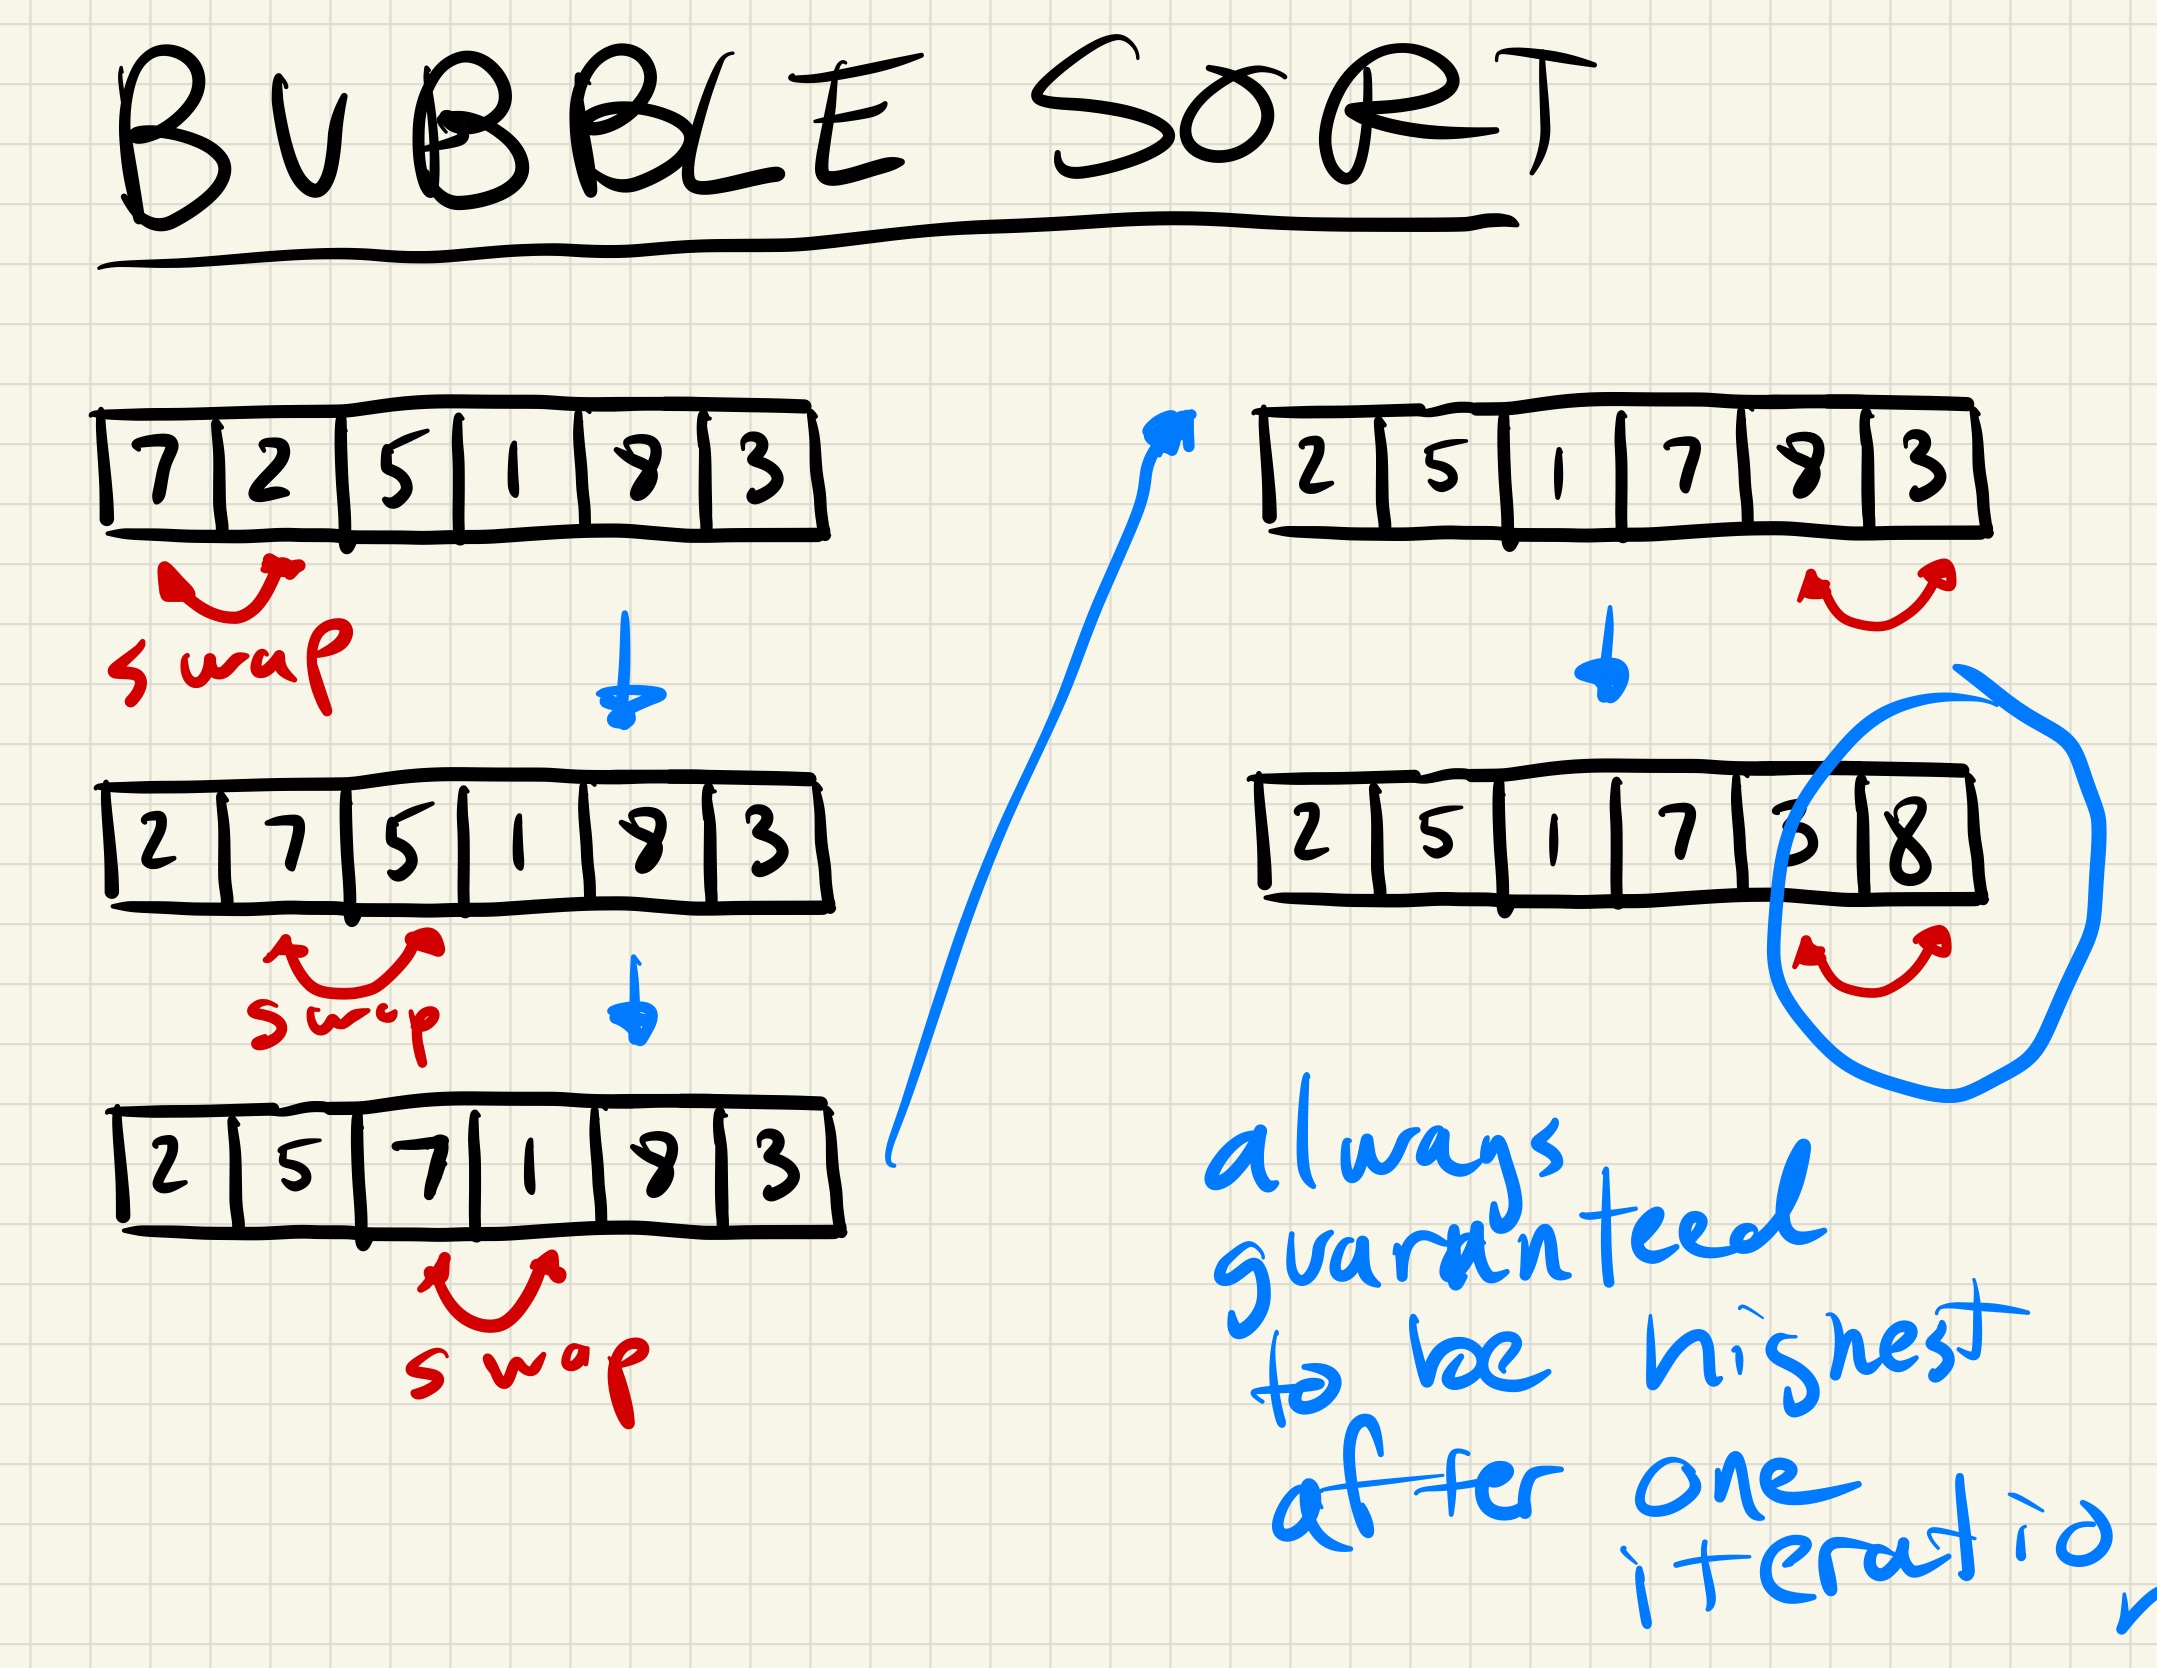 BUBBLE SORT
7 2 5 1 8 3
swap
2 7 5 1 8 3
swap
2 5 7 1 8 3
swap
2 5 1 7 8 3
2 5 1 7 3 8
always
guaranteed
to be highest
after one
iteration